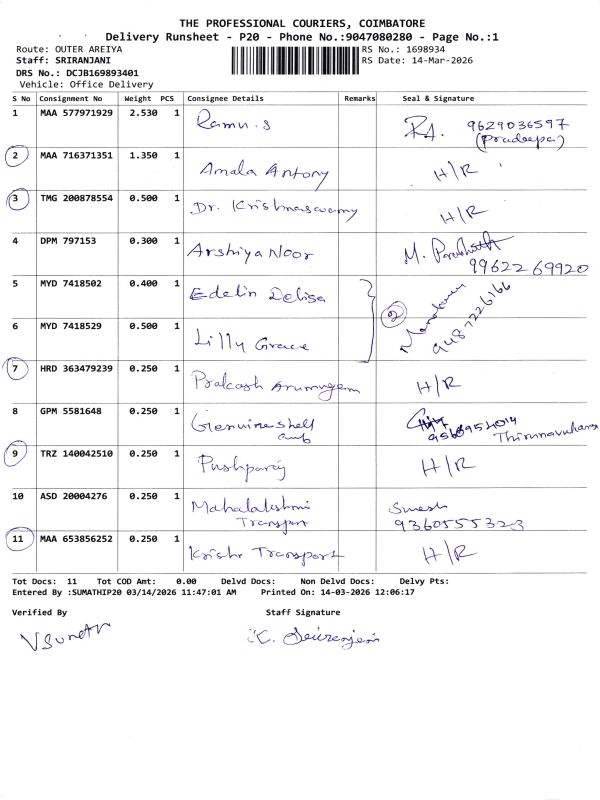 THE PROFESSIONAL COURIERS, COIMBATORE
Delivery Runsheet - P20 - Phone No.:9047080280 - Page No.:1
Route: OUTER AREIYA
RS No.: 1698934
Staff: SRIRANJANI
RS Date: 14-Mar-2026
DRS No.: DCJB169893401
Vehicle: Office Delivery
S No Consignment No Weight PCS Consignee Details Remarks Seal & Signature
1 MAA 577971929 2.530 1 Ramu.s RA. 9629036597
(Pradeepa)
2 MAA 716371351 1.350 1 Amala Antony H/R
3 TMG 200878554 0.500 1 Dr. Krishnaswamy H/R
4 DPM 797153 0.300 1 Arshiya Noor M.
99622 69920
5 MYD 7418502 0.400 1 Edelin Delisa
2
9487226166
6 MYD 7418529 0.500 1 Lilly Grace
7 HRD 363479239 0.250 1 Prakash Arumugem H/R
8 GPM 5581648 0.250 1 Genuine shelf
9 TRZ 140042510 0.250 1 Pushparaj H/R
10 ASD 20004276 0.250 1 Mahalakshmi Suresh
Transport 9360555323
11 MAA 653856252 0.250 1 Krishr Transport H/R
Tot Docs: 11 Tot COD Amt: 0.00 Delvd Docs: Non Delvd Docs: Delvy Pts:
Entered By :SUMATHIP20 03/14/2026 11:47:01 AM Printed On: 14-03-2026 12:06:17
Verified By Staff Signature